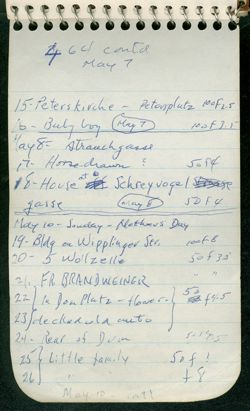 4 64 contd
May 7
15-Peterskirche - Petersplatz 100 f2.5
16- Baby boy May 7 100 f3.5
May 8= Strauchgasse
17- Horse drawn " 50 f4
18-House at 6 Schreyvogel
gasse May 8 50 f4
May 10- Sunday - Mothers Day
19-Bldg on Wipplinger Str. 100 f.8
20- 5 Wollzeile 50 f3.5
21. FR. BRANDWEINER "
22 } In Dom Platz - flower- 50 f4.5
23 } decked old auto
24- Rear of Dom
25 } Little family 50 f
26 } " f8
May 10 -